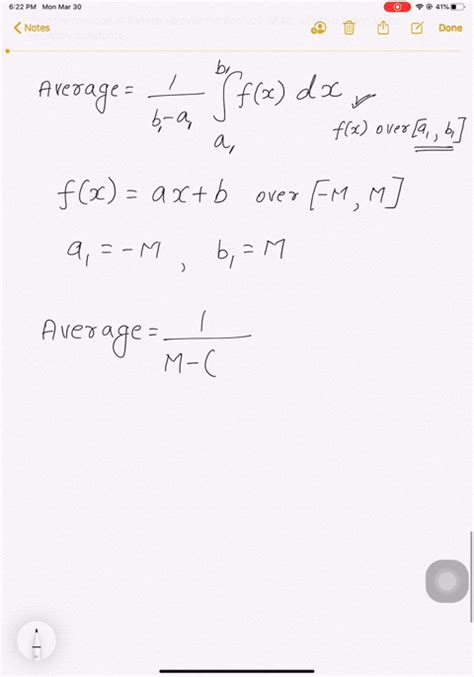 6:22 PM Mon Mar 30
41%
Notes
Done
Average = 1/(b₁-a₁) ∫ₐ₁ᵇ¹ f(x) dx ✓
f(x) over [a₁, b₁]
f(x) = ax+b over [-M, M]
a₁ = -M , b₁ = M
Average = 1/(M-(